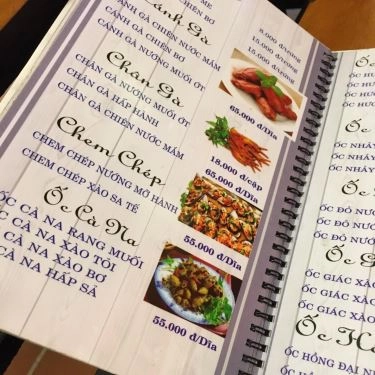 ME
CHIÊN BƠ
Cánh Gà
CÁNH GÀ CHIÊN BƠ
CÁNH GÀ CHIÊN NƯỚC MẮM
CÁNH GÀ NƯỚNG MUỐI ỚT
Chân Gà
CHÂN GÀ NƯỚNG MUỐI ỚT
CHÂN GÀ HẤP HÀNH
CHÂN GÀ CHIÊN NƯỚC MẮM
Chem Chép
CHEM CHÉP NƯỚNG MỠ HÀNH
CHEM CHÉP XÀO SA TẾ
Ốc Cà Na
ỐC CÀ NA RANG MUỐI
ỐC CÀ NA XÀO TỎI
CÀ NA XÀO BƠ
CÀ NA HẤP SẢ
8.000 đ/
15.000 đ/
15.000 đ/
65.000 đ/Dĩa
18.000 đ/cặp
65.000 đ/Dĩa
55.000 đ/Dĩa
55.000 đ/Dĩa
Ốc
ỐC HƯ
ỐC HƯƠ
ỐC HƯƠ
Ố
ỐC NHẢY
ỐC NHẢY
ỐC ĐỎ NƯ
ỐC ĐỎ NƯỚ
Ốc G
ỐC GIÁC XÀO
ỐC GIÁC XÀO
ỐC GIÁC XÀO
Ốc H
ỐC HỒNG ĐẠI N